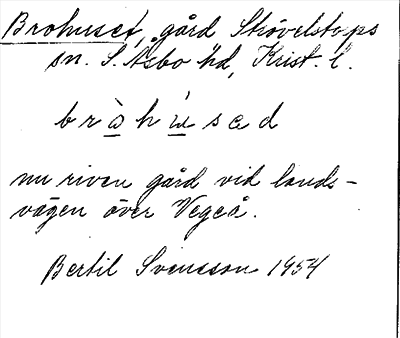 Brohuset, gård Strövelstorps
sn. S. Åsbo hd, Krist. l.
bròhùsəd
nu riven gård vid lands-
vägen över Vegeå.
Bertil Svensson 1954